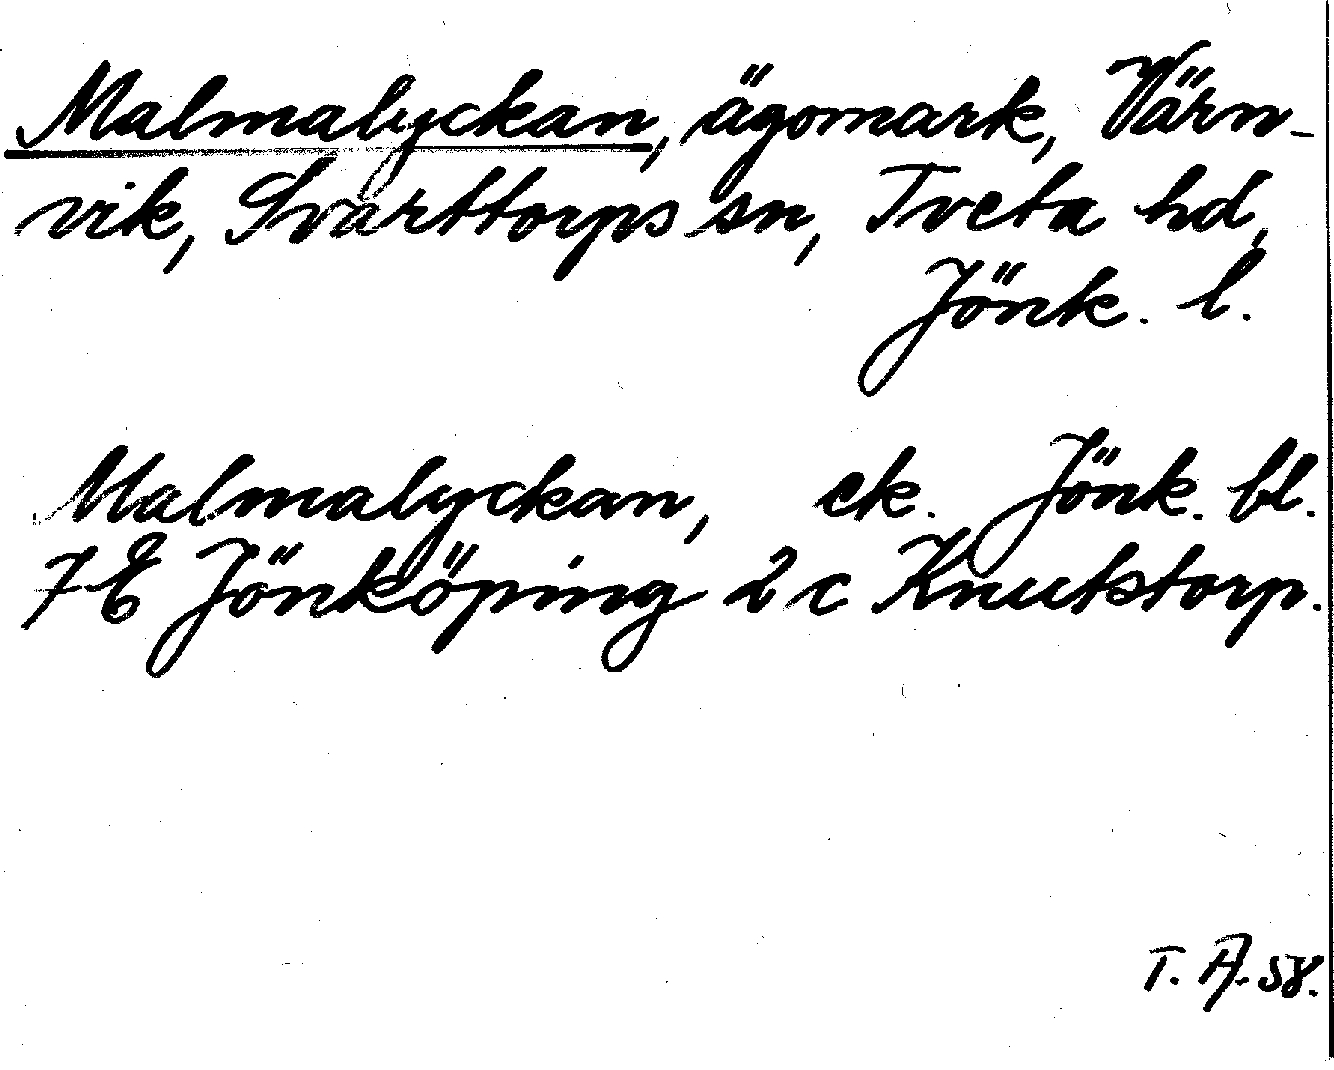 Malmalyckan, ägomark, Värn-
vik, Svarttorps sn, Tveta hd,
Jönk. l.
Malmalyckan, ek. Jönk. bl.
7E Jönköping 2c Knutstorp.
T. A. 58.